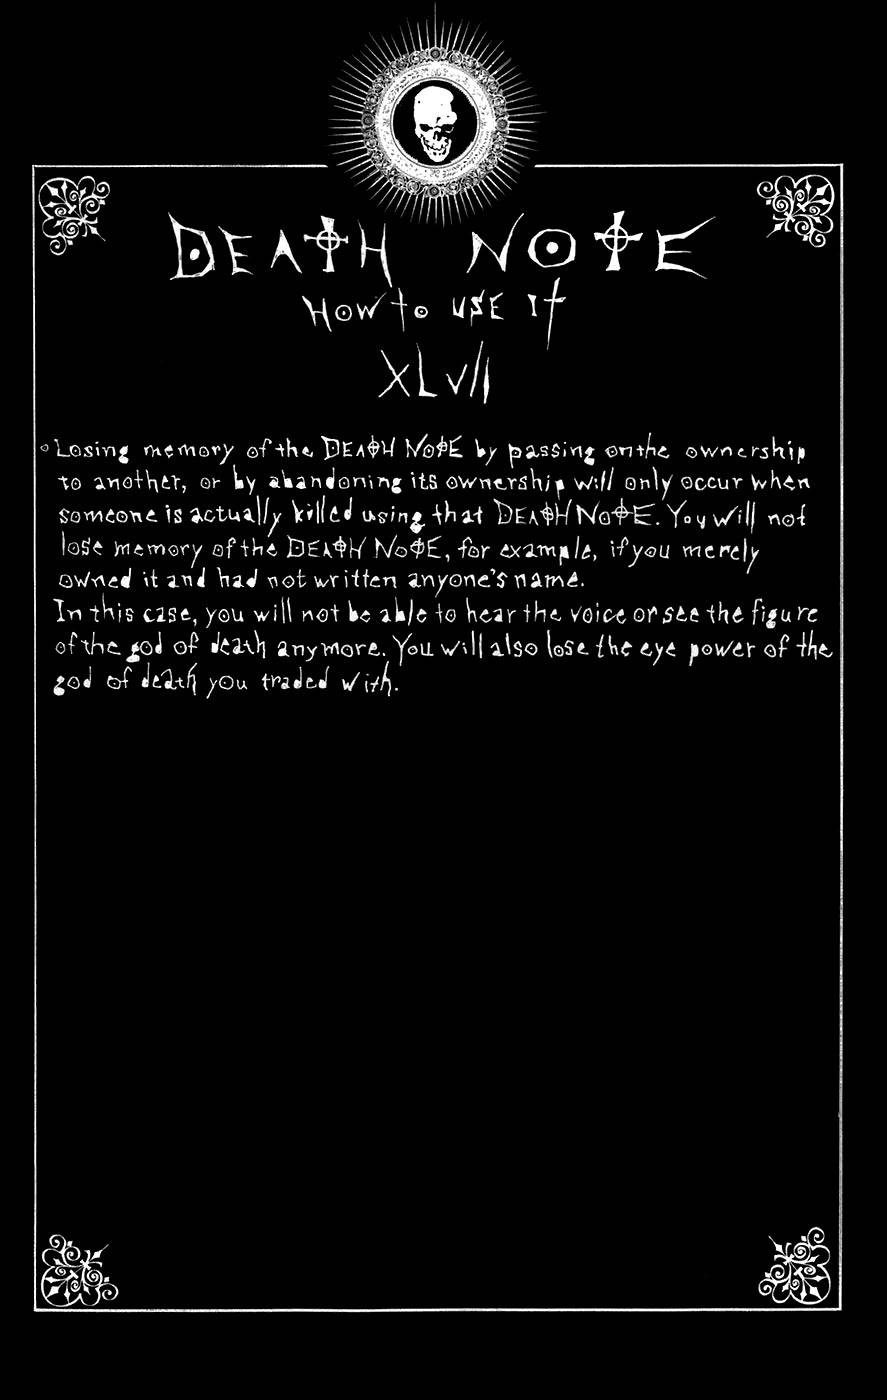 DEATH NOTE
How to USE It
XLVII
Losing memory of the DEATH NOTE by passing on the ownership
to another, or by abandoning its ownership will only occur when
someone is actually killed using that DEATH NOTE. You will not
lose memory of the DEATH NOTE, for example, if you merely
owned it and had not written anyone's name.
In this case, you will not be able to hear the voice or see the figure
of the god of death anymore. You will also lose the eye power of the
god of death you traded with.